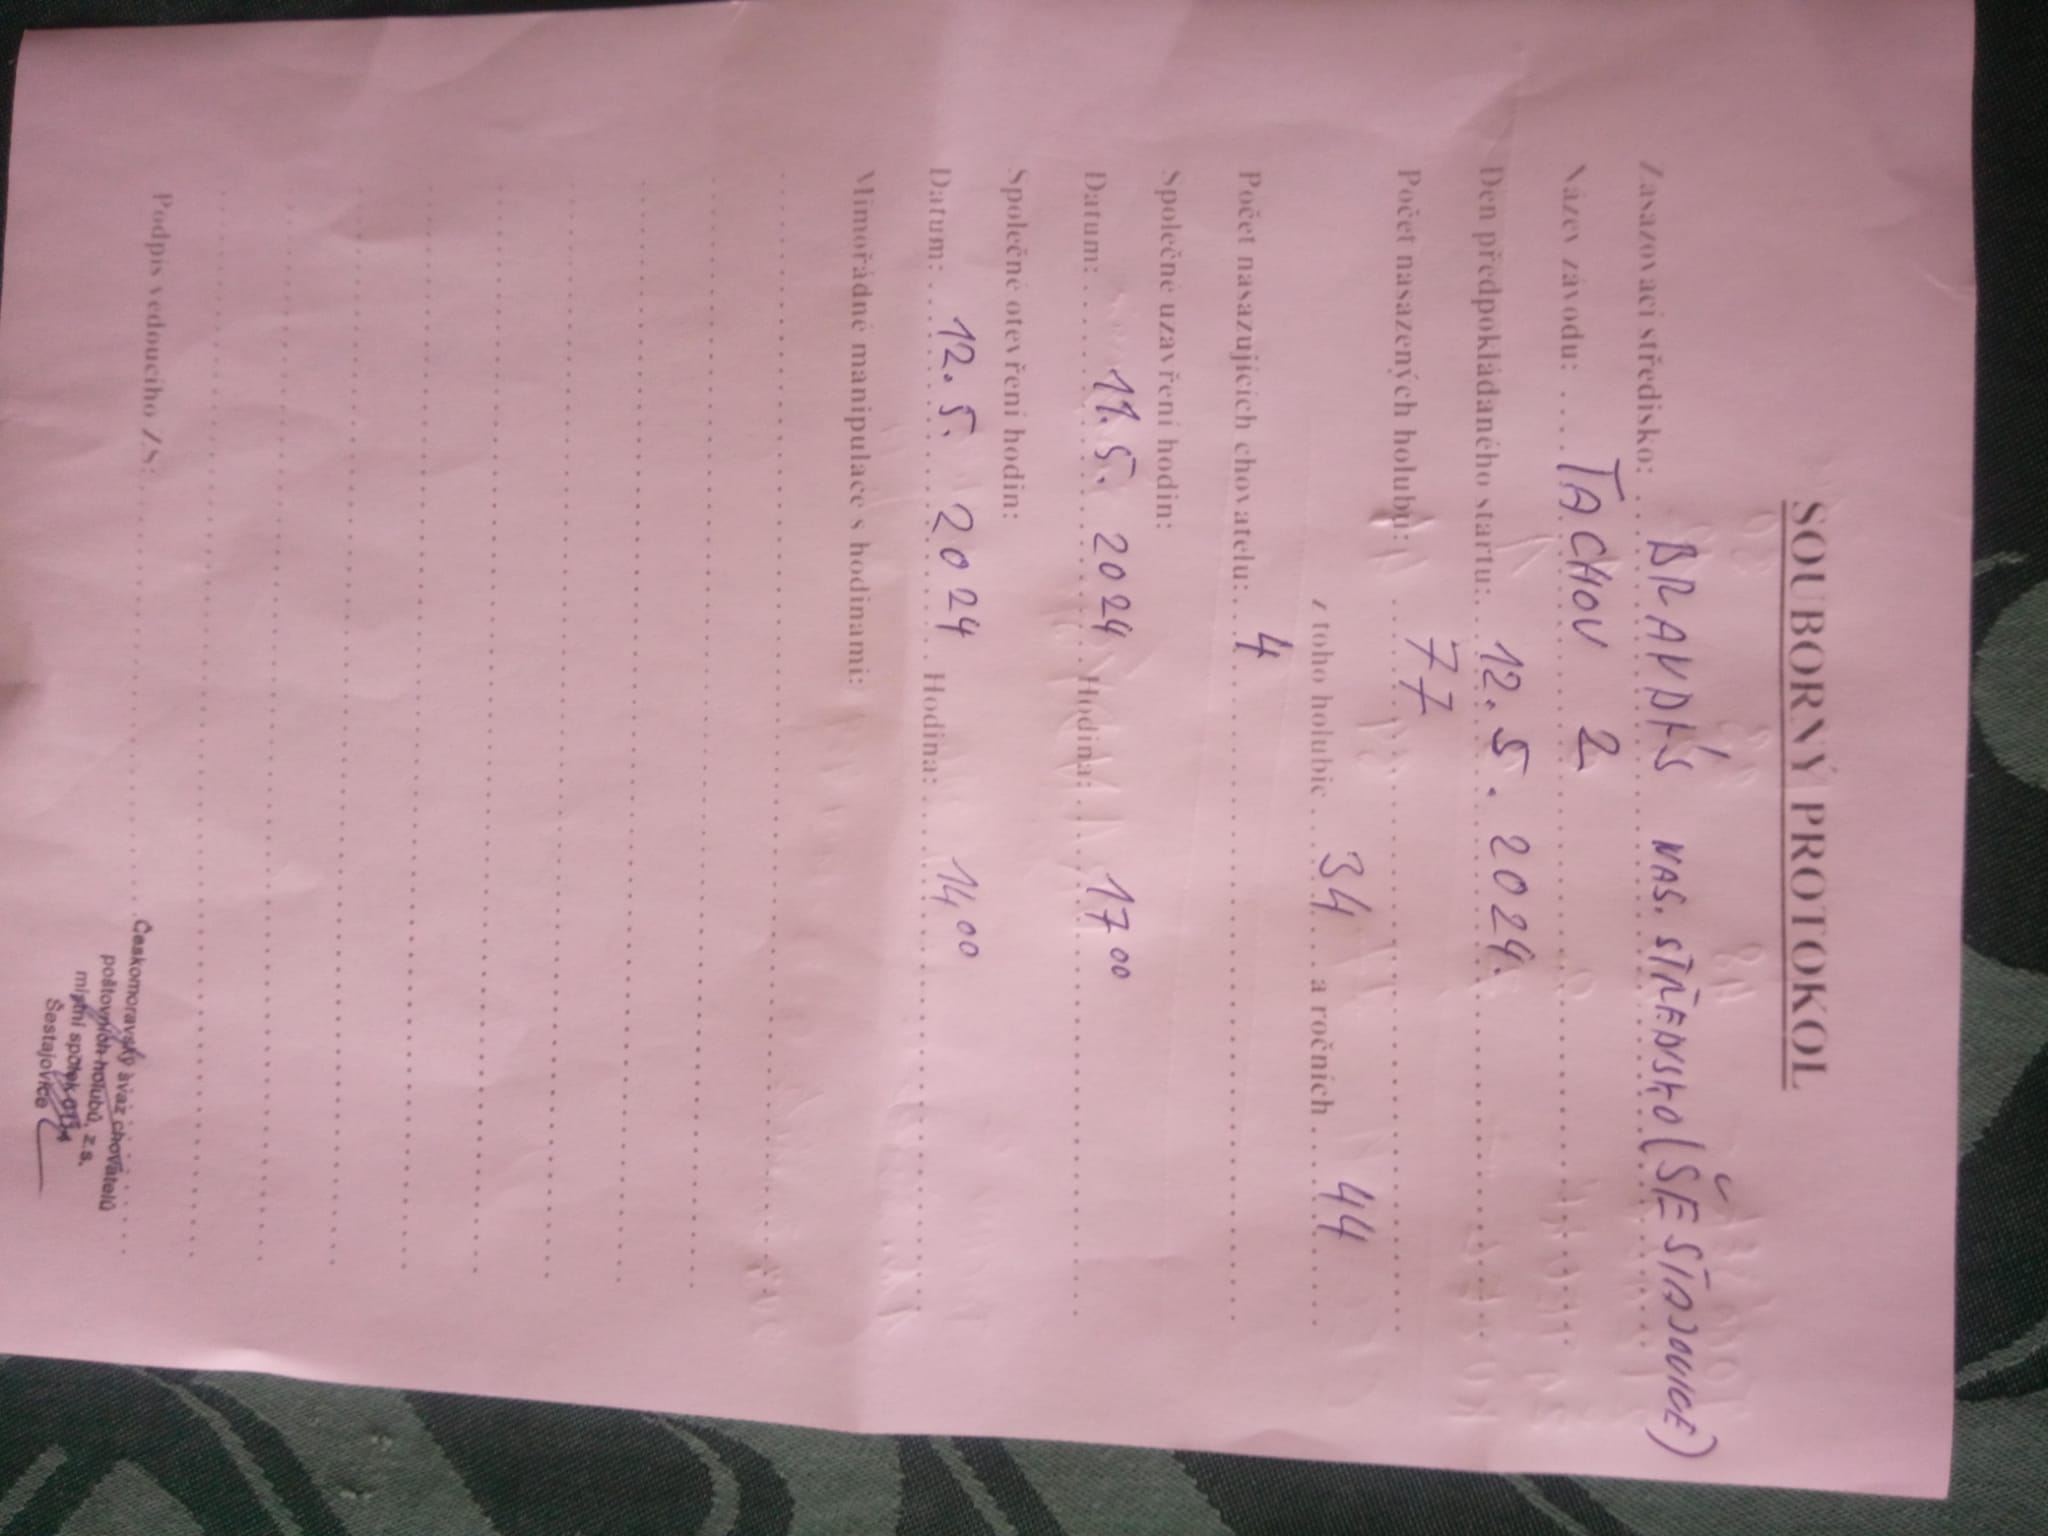 SOUBORNÝ PROTOKOL
Zasazovací středisko: BRANDÝS NAS. STŘEDNSKO (ŠESTAJOVICE)
Název závodu: TACHOV 2
Den předpokládaného startu: 12. 5. 2024.
Počet nasazených holubů: 77
z toho holubic 34 a ročních 44
Počet nasazujících chovatelů: 4
Společné uzavření hodin:
Datum: 11. 5. 2024 Hodina: 17 00
Společné otevření hodin:
Datum: 12. 5. 2024 Hodina: 14 00
Mimořádné manipulace s hodinami:
Podpis vedoucího ZS:
Českomoravský svaz chovatelů
poštovních holubů, z.s.
místní spolek
Šestajovice